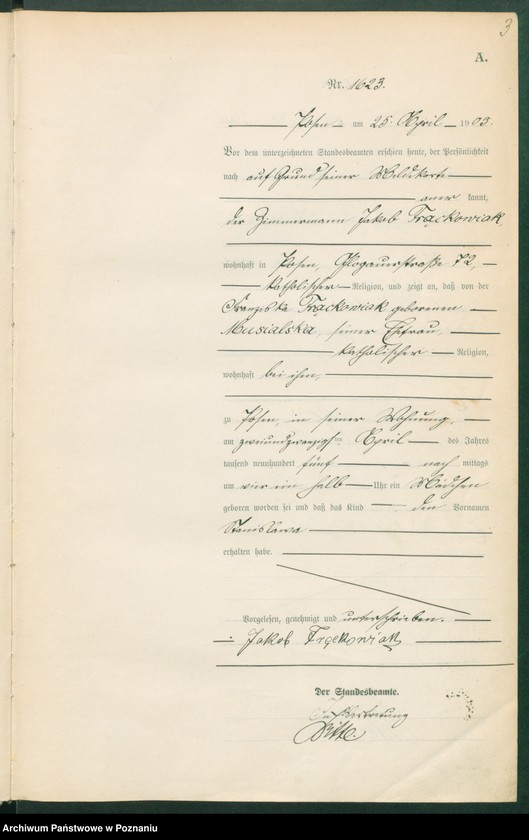 3
A.
Nr. 1623.
Posen am 25. April 1905.
Vor dem unterzeichneten Standesbeamten erschien heute, der Persönlichkeit
nach auf Grund seiner Meldekarte
aner kannt,
der Zimmermann Jakob Trąckowiak
wohnhaft in Posen, Glogauerstraße 72,
katholischer Religion, und zeigt an, daß von der
Franziska Trąckowiak geborenen
Musialska, seiner Ehefrau,
katholischer Religion,
wohnhaft bei ihm,
zu Posen, in seiner Wohnung,
am zweiundzwanzigsten April des Jahres
tausend neunhundert fünf nach mittags
um vier ein halb Uhr ein Mädchen
geboren worden sei und daß das Kind den Vornamen
Stanislawa
erhalten habe.
Vorgelesen, genehmigt und unterschrieben.
Jakob Trąckowiak
Der Standesbeamte.
In Vertretung
Archiwum Państwowe w Poznaniu